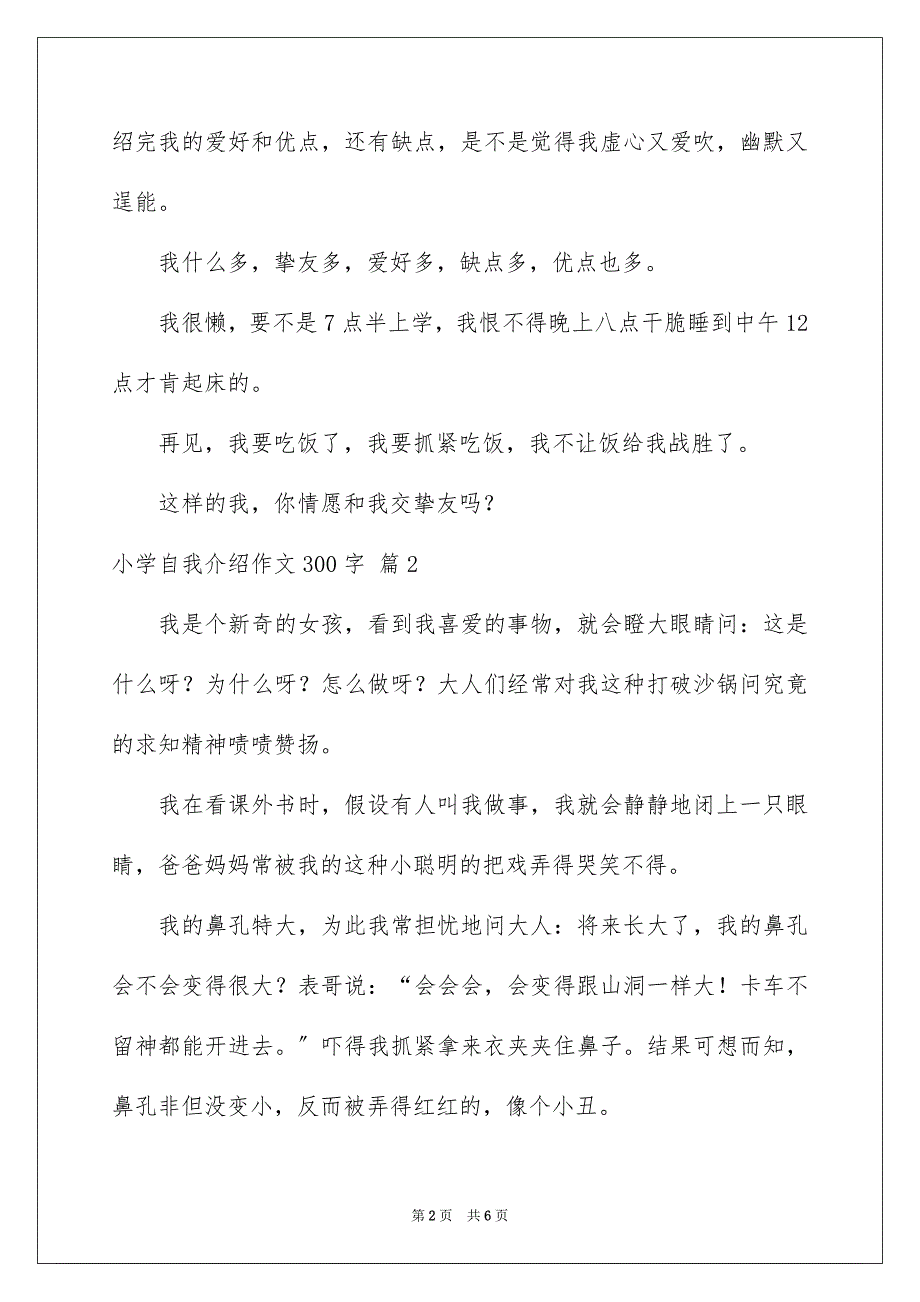 绍完我的爱好和优点，还有缺点，是不是觉得我虚心又爱吹，幽默又
逞能。
我什么多，挚友多，爱好多，缺点多，优点也多。
我很懒，要不是 7 点半上学，我恨不得晚上八点干脆睡到中午 12
点才肯起床的。
再见，我要吃饭了，我要抓紧吃饭，我不让饭给我战胜了。
这样的我，你情愿和我交挚友吗？
小学自我介绍作文 300 字 篇 2
我是个新奇的女孩，看到我喜爱的事物，就会瞪大眼睛问：这是
什么呀？为什么呀？怎么做呀？大人们经常对我这种打破沙锅问究竟
的求知精神啧啧赞扬。
我在看课外书时，假设有人叫我做事，我就会静静地闭上一只眼
睛，爸爸妈妈常被我的这种小聪明的把戏弄得哭笑不得。
我的鼻孔特大，为此我常担忧地问大人：将来长大了，我的鼻孔
会不会变得很大？表哥说：“会会会，会变得跟山洞一样大！卡车不
留神都能开进去。〞吓得我抓紧拿来衣夹夹住鼻子。结果可想而知，
鼻孔非但没变小，反而被弄得红红的，像个小丑。
第 2 页 共 6 页